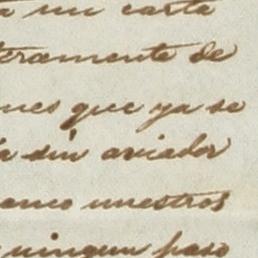 a mi carta
teramente de
nes que ya se
a sin aviador
anco nuestros
ningun paso